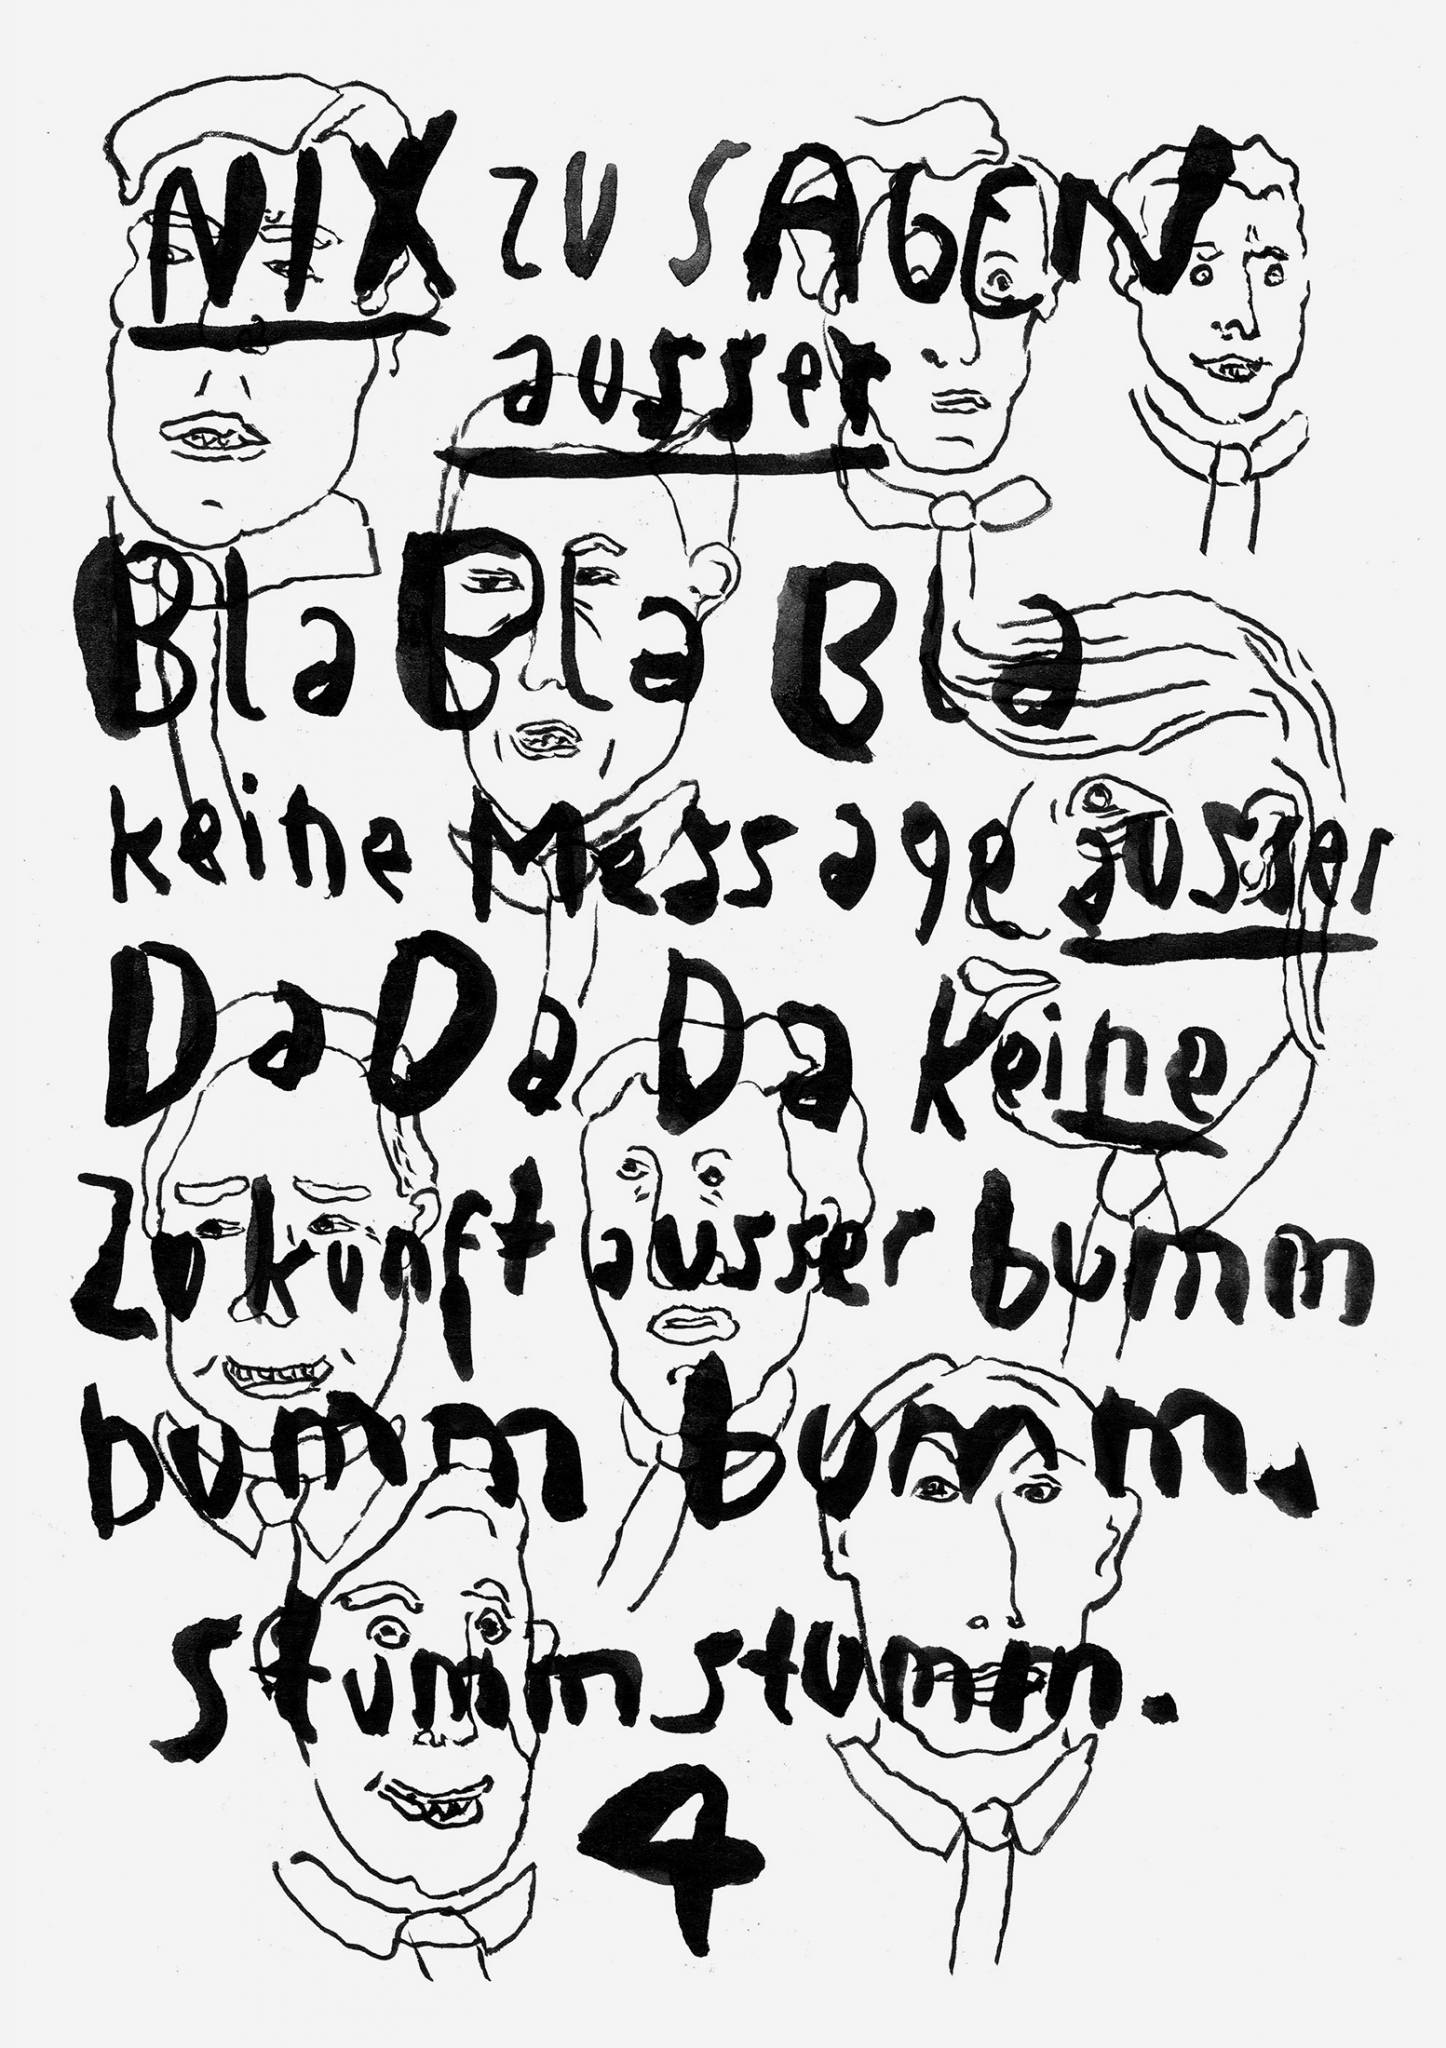 NIX ZU SAGEN
ausser
Bla Bla Bla
keine Message ausser
Da Da Da Keine
Zukunft ausser bumm
bumm bumm.
stumm stumm.
4